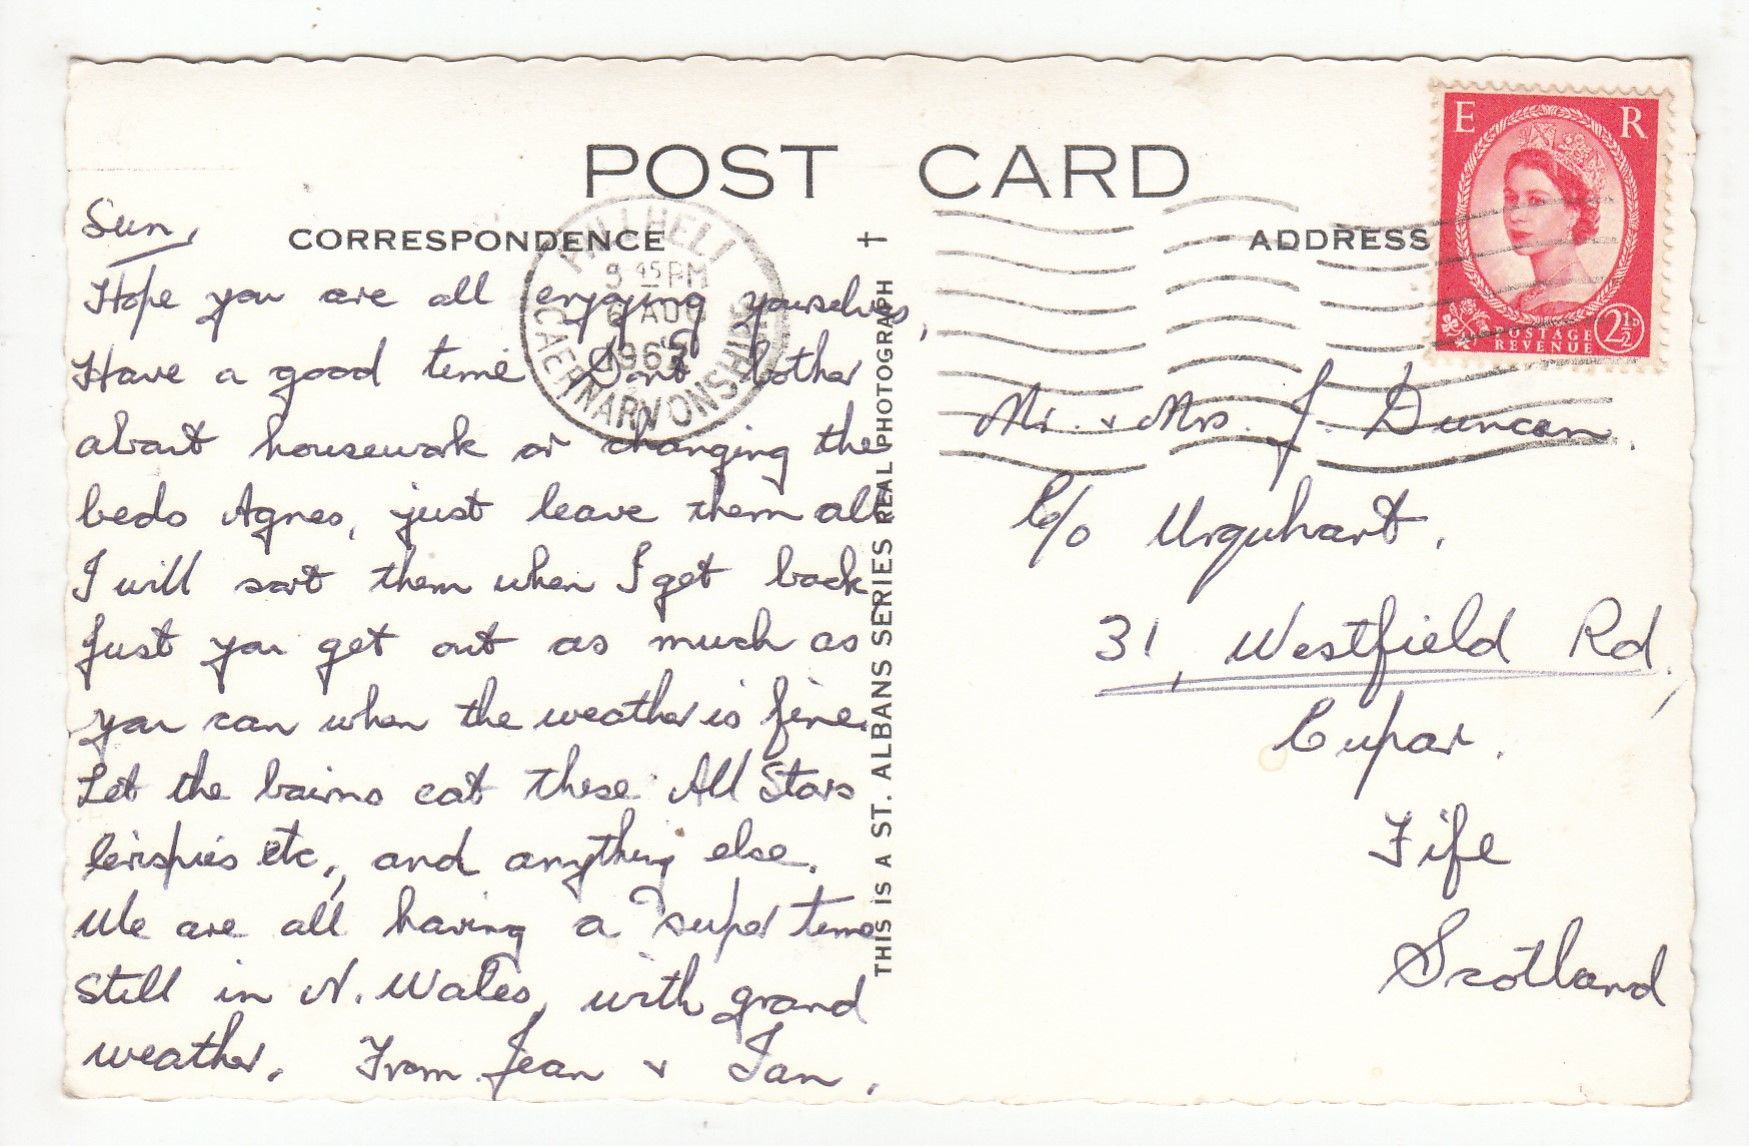 POST CARD
CORRESPONDENCE
ADDRESS
E R
POSTAGE
REVENUE
2½D
PWLLHELI
45 PM
6 AUG
196
CAERNARVONSHIRE
Sun,
Hope you are all enjoying yourselves,
Have a good time Dont bother
about housework or changing the
beds Agnes, just leave them all
I will sort them when I get back
Just you get out as much as
you can when the weather is fine.
Let the bairns eat these All Stars
Crispies etc., and anything else.
We are all having a super time
still in N. Wales, with grand
weather. From Jean & Ian.
THIS IS A ST. ALBANS SERIES REAL PHOTOGRAPH
Mr. & Mrs. J. Duncan.
C/o Urquhart.
31, Westfield Rd,
Cupar.
Fife
Scotland